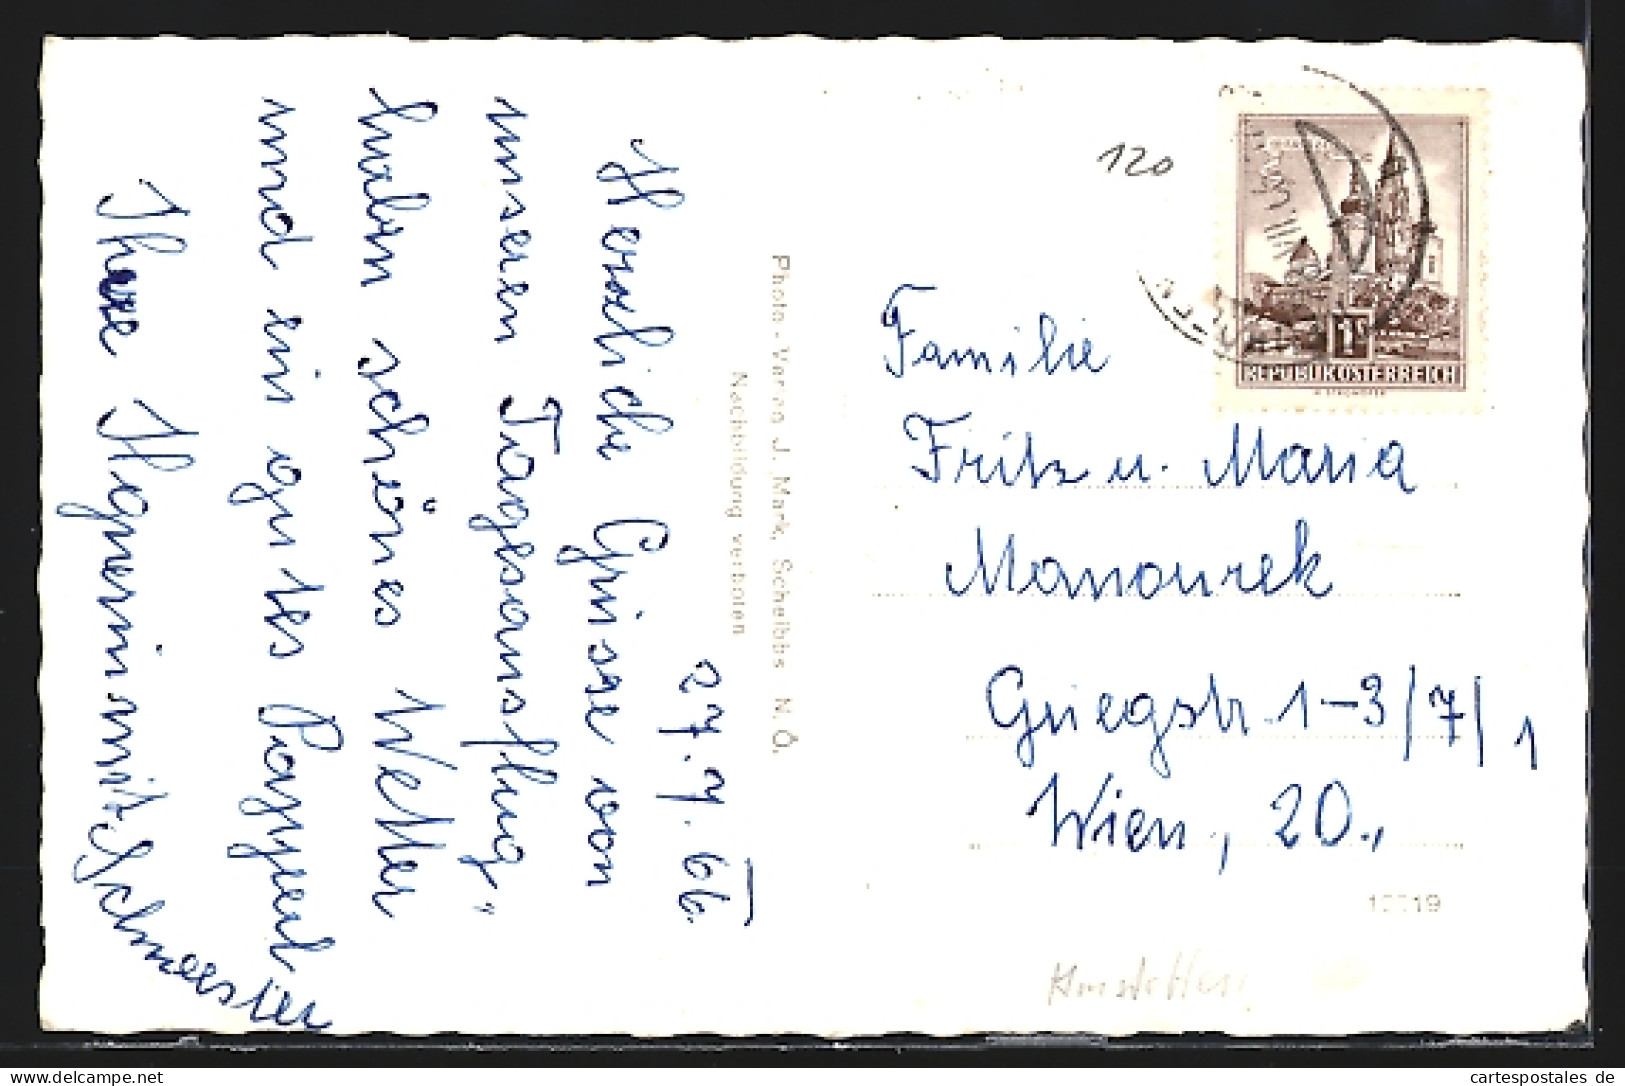 27.7.66.
Herzliche Grüsse von
unserem Tagesausflug,
haben schönes Wetter
und ein gutes
Ihre mit Schwester
Photo-Verlag J. Mark, Scheibbs N.Ö.
Nachbildung verboten
120
1S
REPUBLIK ÖSTERREICH
Familie
Fritz u. Maria
Manourek
Griegstr. 1-3/7/1
Wien, 20.,
Amstetten
www.cartespostales.de
cartespostales de